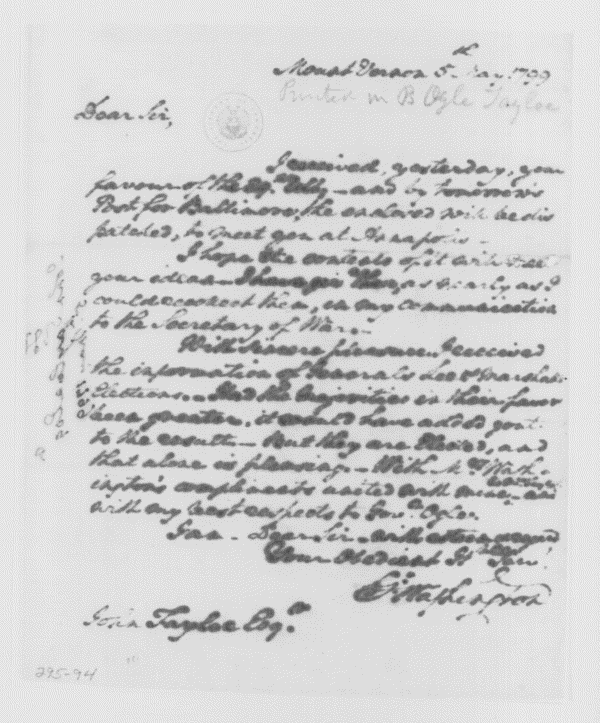 Mount Vernon 5th May 1799
Printed in B Ogle Tayloe
Dear Sir,
I received, yesterday, your
favour of the 29th Ulto - and by tomorrow's
Post for Baltimore, the enclosed will be dis
patched, to meet you at Annapolis -
I hope the contents of it will meet
your ideas - I have given them, as nearly as I
could recollect them, in my communication
to the Secretary of War. -
With sincere pleasure I received
the information of Generals Lee & Marshalls
Elections. - Had the Majorities in their favor
been greater, it would have added
to the result - but they are Elected, and
that alone is pleasing. - With Mrs Wash-
ington's compliments united with mine - and
with my best respects to Govr Ogle.
I am - Dear Sir - with esteem & regard
Your Obedient
Go Washington
John Tayloe Esqr
295-94